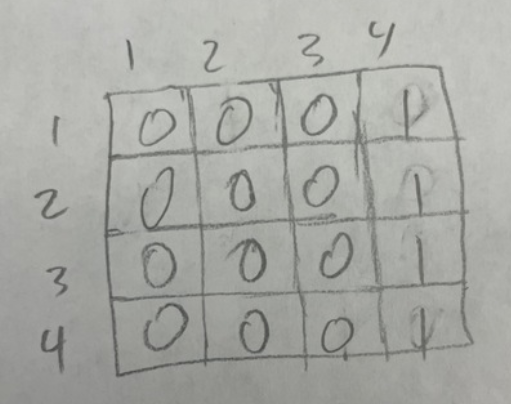 1 2 3 4
1 0 0 0 1
2 0 0 0 1
3 0 0 0 1
4 0 0 0 1